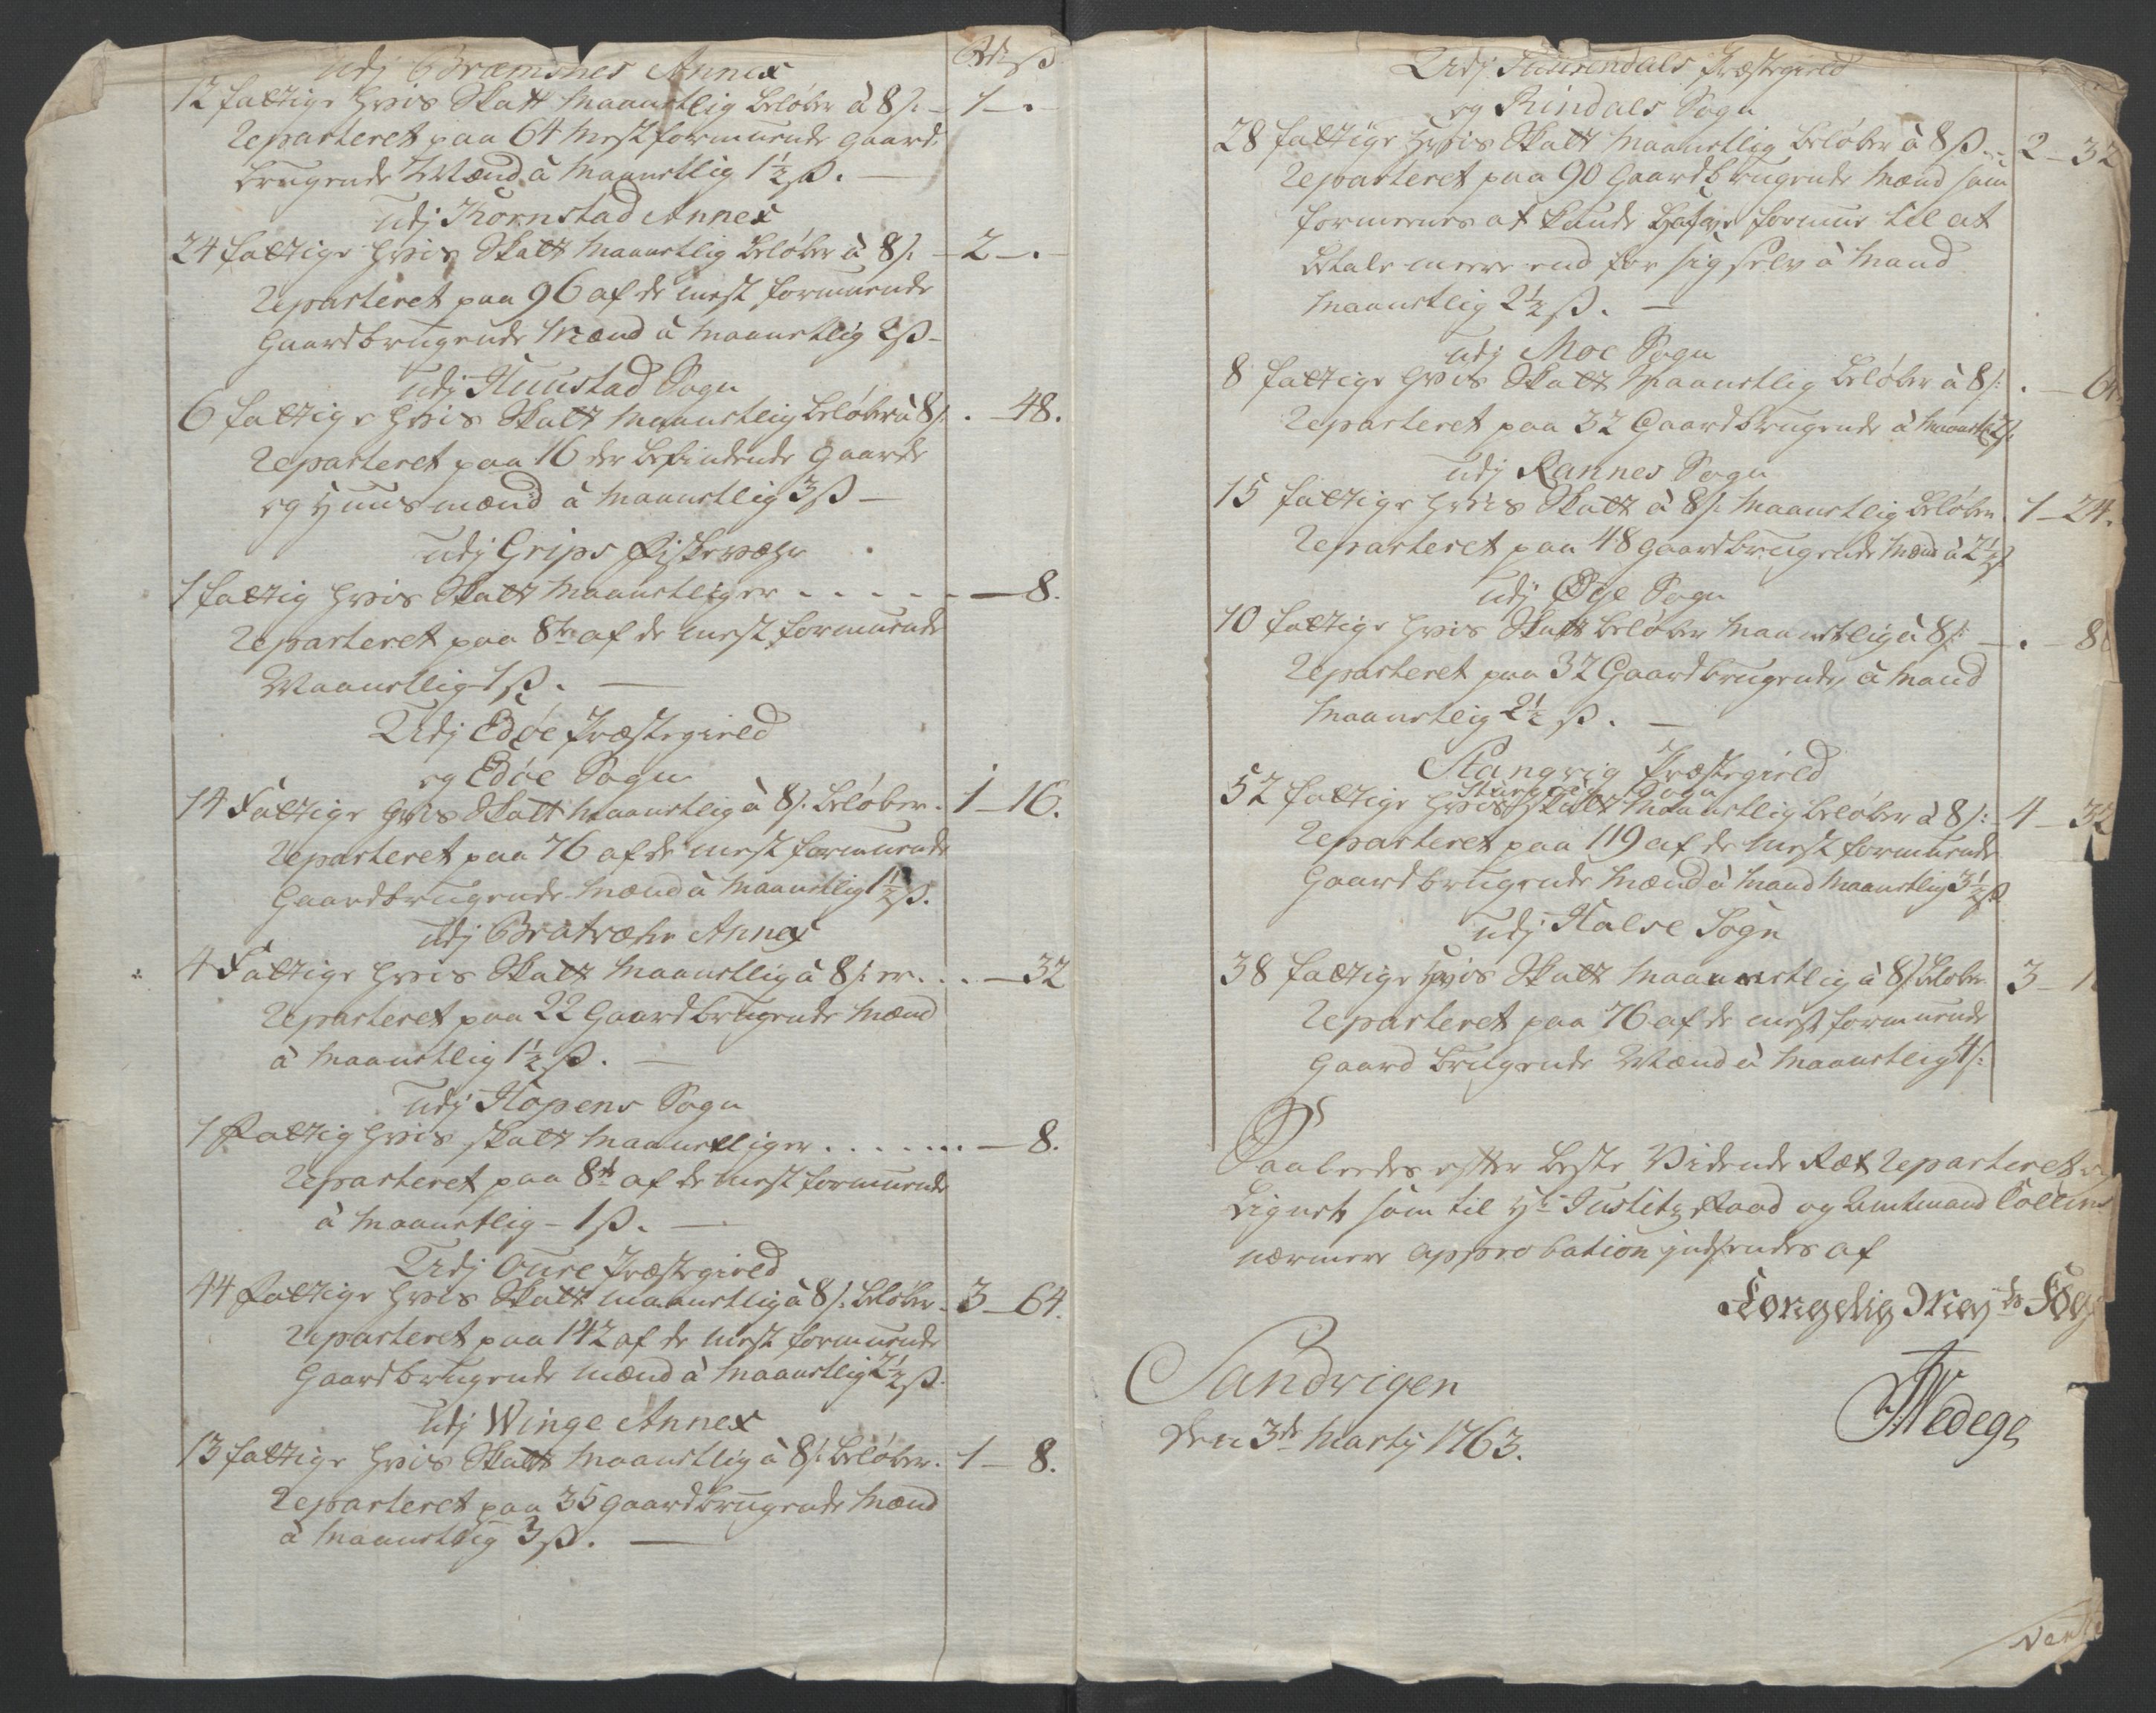 Rdr ß
Udj Bræmsnes Annex
12 fattige hvis Skatt Maanetlig beløber à 8 s. - 1 - .
Reparteret paa 64 Mest formuende gaard
brugende Mænd à Maanetlig 1½ ß. —
Udj Kornstad Annex
24 fattige hvis Skatt Maanetlig beløber à 8 s. - 2 - .
Reparteret paa 96 af de mest formuende
Gaardbrugende Mænd à Maanetlig 2 ß -
Udj Huustad Sogn
6 fattige hvis Skatt Maanetlig beløber à 8 s. . - 48.
Reparteret paa 16 der befindende Gaarde
og Huusmænd à Maanetlig 3 ß —
Udj Grips Fiskevæhr
1 fattig hvis Skatt Maanetlig er - - - - - — 8.
Reparteret paa 8te af de mest formuende
Maanetlig 1 ß. —
Udj Edøe Præstegield
og Edøe Sogn
14 Fattige hvis Skatt Maanetlig à 8 s. beløber . 1 - 16.
Reparteret paa 76 af de mest formuende
Gaardbrugende Mænd à Maanetlig 1½ ß.
Udj Bratvæhr Annex
4 Fattige hvis Skatt Maanetlig à 8 s. er . . . — 32
Reparteret paa 22 Gaardbrugende Mænd
à Maanetlig 1½ ß. —
Udj Hopens Sogn
1 Fattig hvis Skatt Maanetlig er . . . . . . . — 8.
Reparteret paa 8te af de mest formuende
à Maanetlig - 1 ß. —
Udj Oure Præstegield
44 Fattige hvis Skatt maanetlig à 8 s. beløber - 3 - 64.
Reparteret paa 142 af de mest formuende
Gaardbrugende mænd à Maanetlig 2½ ß.
Udj Winge Annex
13 fattige hvis Skatt Maanetlig à 8 s. beløber. 1 - 8.
Reparteret paa 35 gaardbrugende Mænd
à Maanetlig 3 ß. —
Udj Surendals Præstegield
og Rindals Sogn
28 fattige hvis Skatt Maanetlig beløber à 8 ß. - 2 - 32
Reparteret paa 90 Gaardbrugende Mænd som
formeenes at kunde hafve formue til at
betale meere end for sig selv à Mand
Maanetlig 2½ ß. —
Udj Moe Sogn
8 fattige hvis Skatt Maanetlig beløber à 8 s: . - 64
Reparteret paa 32 Gaardbrugende à Maanetl: 2 s.
Udj Rannes Sogn
15 fattige hvis Skatt à 8 s. Maanetlig beløber . 1 - 24.
Reparteret paa 48 gaardbrugende Mænd à 2½ ß
Udj Øye Sogn
10 fattige hvis Skatt beløber Maanetlig à 8 s: - . - 80
Reparteret paa 32 Gaardbrugende, à Mand
Maanetlig 2½ ß. —
Stangvig Præstegield
Stangvig Sogn
52 fattige hvis Skatt Maanetlig beløber à 8 s: - 4 - 32
Reparteret paa 119 af de mest formuende
Gaardbrugende Mænd à Mand Maanetlig 3½ ß
Udj Halse Sogn
38 fattige hvis Skatt Maanetlig à 8 s. beløber 3 - 1
Reparteret paa 76 af de mest formuende
Gaard brugende Mænd à Maanetlig 4 s:
Saaleedes efter beste Vidende Ræt Reparteret og
Lignet, som til Hr. Justitz Raad og Amtmand Collins
nærmere Approbation indsendes af
Kongelig May:ts Fog
Sandvigen
Den 3de Martij 1763.
Wedege